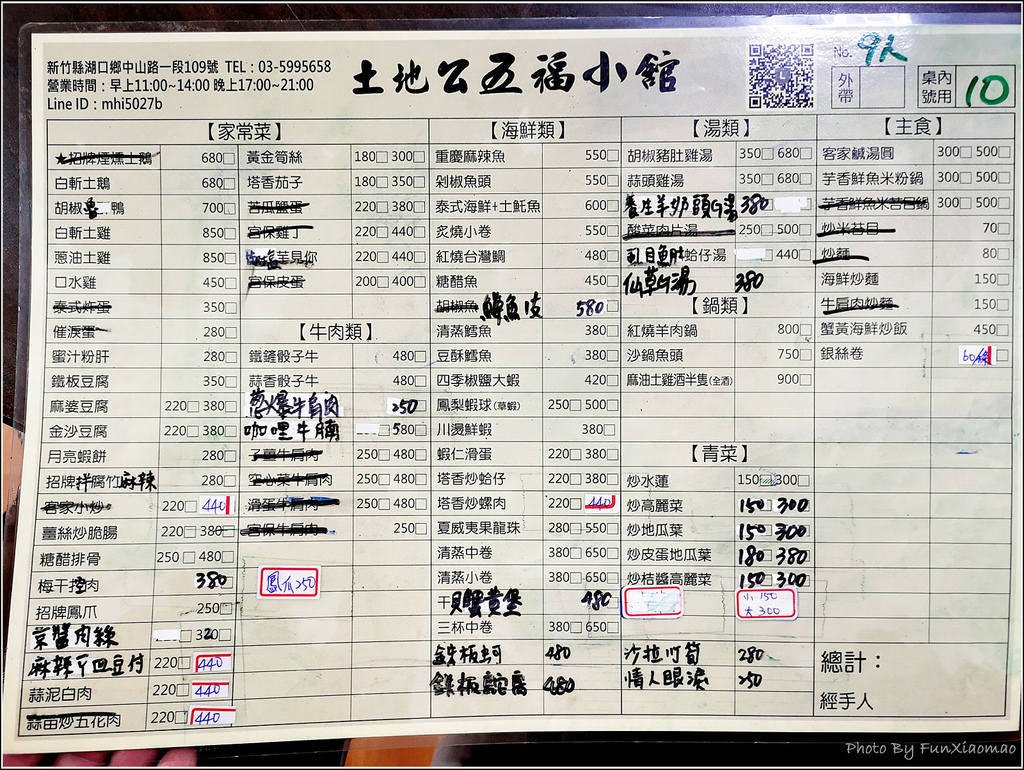 新竹縣湖口鄉中山路一段109號 TEL：03-5995658
營業時間：早上11:00~14:00 晚上17:00~21:00
Line ID：mhi5027b
土地公五福小館
No. 9人
外帶
桌號 內用 10
【家常菜】
★招牌煙燻土鵝 680
白斬土鵝 680
胡椒 鴨 700
白斬土雞 850
蔥油土雞 850
口水雞 450
泰式炸蛋 350
催淚蛋 280
蜜汁粉肝 280
鐵板豆腐 350
麻婆豆腐 220 380
金沙豆腐 220 380
月亮蝦餅 280
招牌拌腐竹麻辣
客家小炒 220 440
薑絲炒脆腸 220 380
糖醋排骨 250 480
梅干控肉 380
招牌鳳爪 250
京醬肉絲 320
麻辣皮蛋豆腐 220 440
蒜泥白肉 220 440
蒜苗炒五花肉 220 440
黃金筍絲 180 300
塔香茄子 180 350
苦瓜鹹蛋 220 380
宮保雞丁 220 440
芋見你 220 440
宮保皮蛋 200 400
【牛肉類】
鐵鏟骰子牛 480
蒜香骰子牛 480
蔥爆牛肩肉 250
咖哩牛腩 580
子薑牛肩肉 250 480
空心菜牛肩肉 250 480
滑蛋牛肩肉 250 480
宮保牛肩肉 250
鳳爪250
【海鮮類】
重慶麻辣魚 550
剁椒魚頭 550
泰式海鮮+土魠魚 600
炙燒小卷 550
紅燒台灣鯛 480
糖醋魚 450
胡椒魚 鱘魚皮 580
清蒸鱈魚 380
豆酥鱈魚 380
四季椒鹽大蝦 420
鳳梨蝦球(草蝦) 250 500
川燙鮮蝦 380
蝦仁滑蛋 220 380
塔香炒蛤仔 220 380
塔香炒螺肉 220 440
夏威夷果龍珠 280 550
清蒸中卷 380 650
清蒸小卷 380 650
干貝蟹黃堡 480
三杯中卷 380 650
鐵板蚵 480
鐵板鮀鳥 480
【湯類】
胡椒豬肚雞湯 350 680
蒜頭雞湯 350 680
養生羊奶頭G湯 380
酸菜肉片湯 250 500
虱目魚肚蛤仔湯 440
仙草G湯 380
【鍋類】
紅燒羊肉鍋 800
沙鍋魚頭 750
麻油土雞酒半隻(全酒) 900
【青菜】
炒水蓮 150 300
炒高麗菜 150 300
炒地瓜葉 150 300
炒皮蛋地瓜葉 180 380
炒桔醬高麗菜 150 300
小150
大300
沙拉竹筍 280
情人眼淚 250
【主食】
客家鹹湯圓 300 500
芋香鮮魚米粉鍋 300 500
芋香鮮魚米苔目鍋 300 500
炒米苔目 70
炒麵 80
海鮮炒麵 150
牛肩肉炒麵 150
蟹黃海鮮炒飯 450
銀絲卷 60/條
總計：
經手人
Photo By FunXiaomao